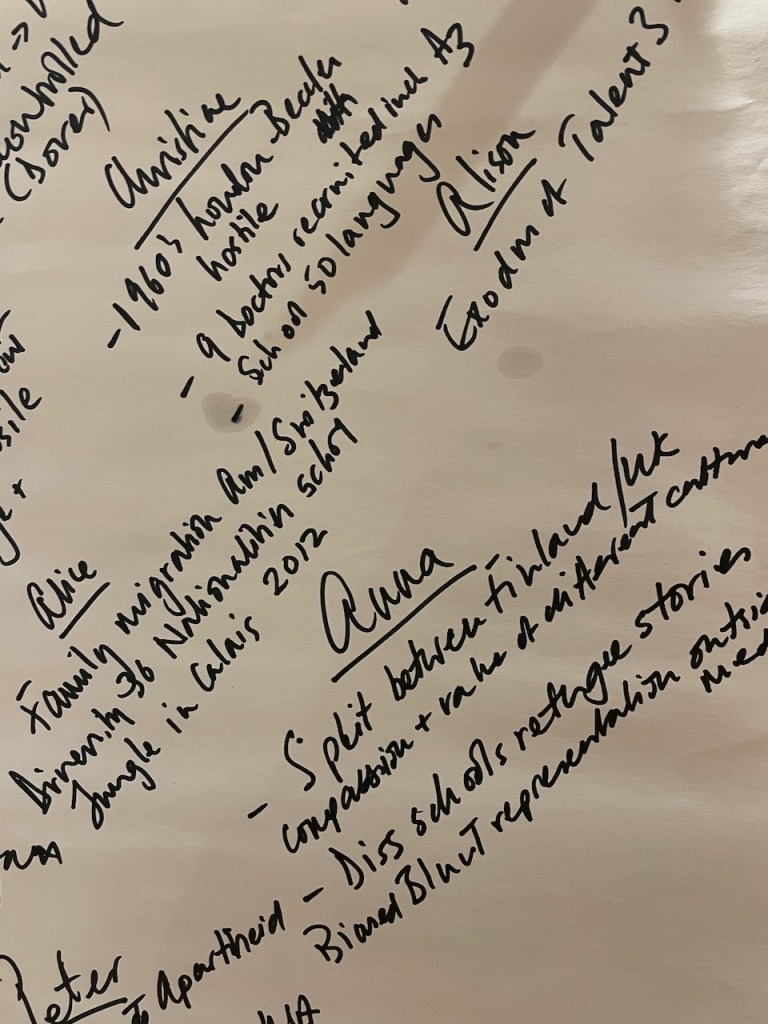 controlled
(Dover)
Christine
- 1960's London - Bealer
hostile
- 9 Doctors recruited incl A3
School 50 languages
-
Alison
Exodus of Talent 3
Alice
Family migration Am/Switzerland
Diversity 36 Nationalities school
Jungle in Calais 2012
Anna
- Split between Finland/UK
compassion + value of different culture
- Diss schools refugee stories
Biased Blunt representation outside
Med
Peter
to Apartheid